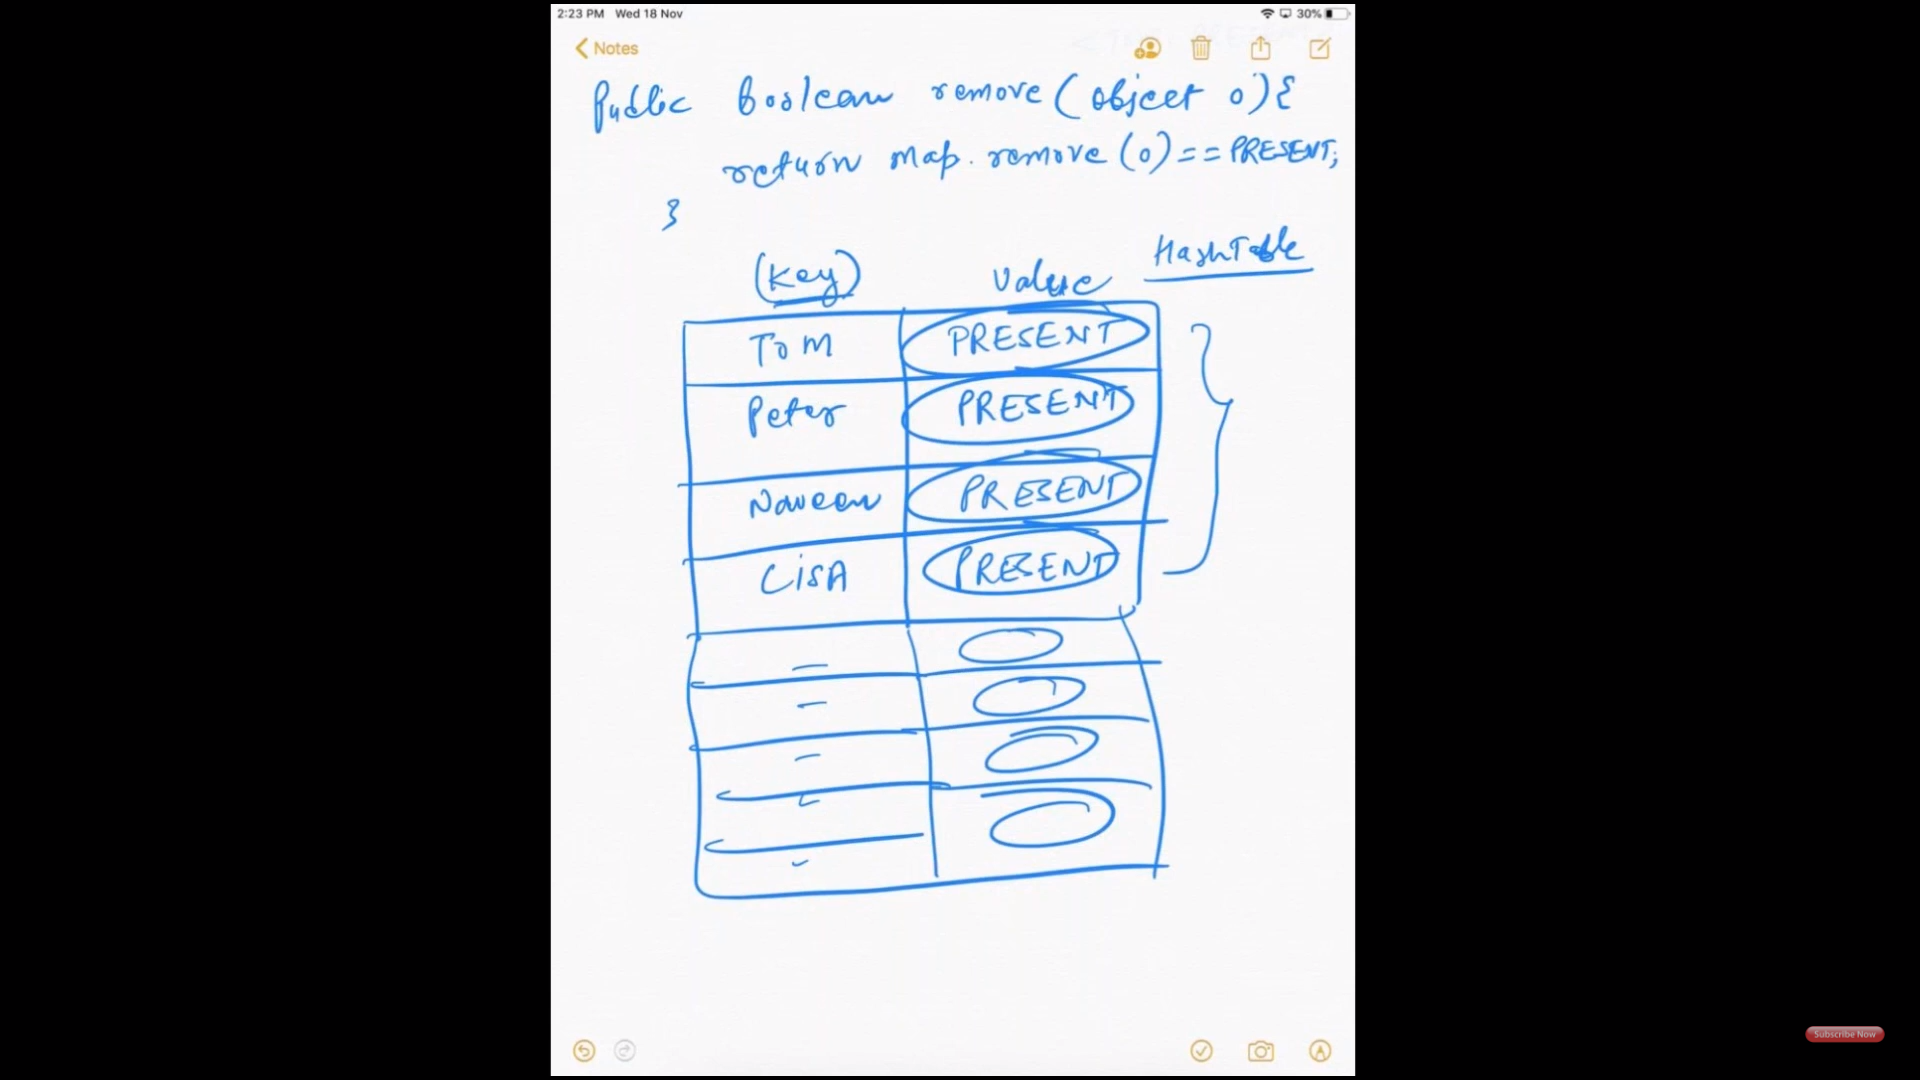 2:23 PM Wed 18 Nov 30%
Notes
Public boolean remove (object o){
return map.remove(o)==PRESENT;
}
HashTable
(Key) Value
Tom PRESENT
Peter PRESENT
Naveen PRESENT
LisA PRESENT
Subscribe Now